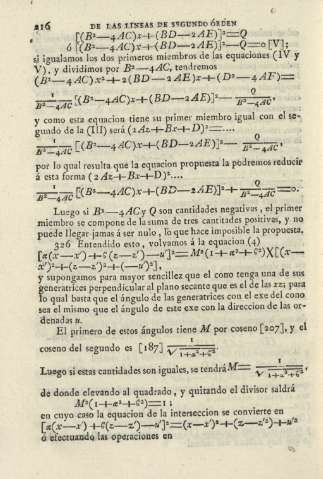 216 DE LAS LINEAS DE SEGUNDO ÓRDEN
[(B²—4AC)x+(BD—2AE)]²=Q
ó [(B²—4AC)x+(BD—2AE)]²—Q=0 [V];
si igualamos los dos primeros miembros de las equaciones (IV y
V), y dividimos por B²—4AC, tendremos
(B²—4AC)x²+2(BD—2AE)x+(D²—4AF)=
1/(B²—4AC) [(B²—4AC)x+(BD—2AE)]²— Q/(B²—4AC),
y como esta equacion tiene su primer miembro igual con el se-
gundo de la (III) será (2Az+Bx+D)²=....
1/(B²—4AC) [(B²—4AC)x+(BD—2AE)]²— Q/(B²—4AC),
por lo qual resulta que la equacion propuesta la podremos reducir
á esta forma (2Az+Bx+D)²....
1/(B²—4AC) [(B²—4AC)x+(BD—2AE)]²+ Q/(B²—4AC)=0.
Luego si B²—4AC y Q son cantidades negativas, el primer
miembro se compone de la suma de tres cantidades positivas, y no
puede llegar jamás á ser nulo, lo que hace imposible la propuesta.
326 Entendido esto, volvamos á la equacion (4)
[α(x—x')+ϐ(z—z')—u']²=M²(1+α²+ϐ²)X[(x—
x')²+(z—z')²+(—u')²],
y supongamos para mayor sencillez que el cono tenga una de sus
generatrices perpendicular al plano secante que es el de las xz; para
lo qual basta que el ángulo de las generatrices con el exe del cono
sea el mismo que el ángulo de este exe con la direccion de las or-
denadas u.
El primero de estos ángulos tiene M por coseno [207], y el
coseno del segundo es [187] 1/√(1+α²+ϐ²).
Luego si estas cantidades son iguales, se tendrá M= 1/√(1+α²+ϐ²),
de donde elevando al quadrado, y quitando el divisor saldrá
M²(1+α²+ϐ²)=1;
en cuyo caso la equacion de la interseccion se convierte en
[α(x—x')+ϐ(z—z')—u']²=(x—x')²+(z—z')²+u'²
ó efectuando las operaciones en